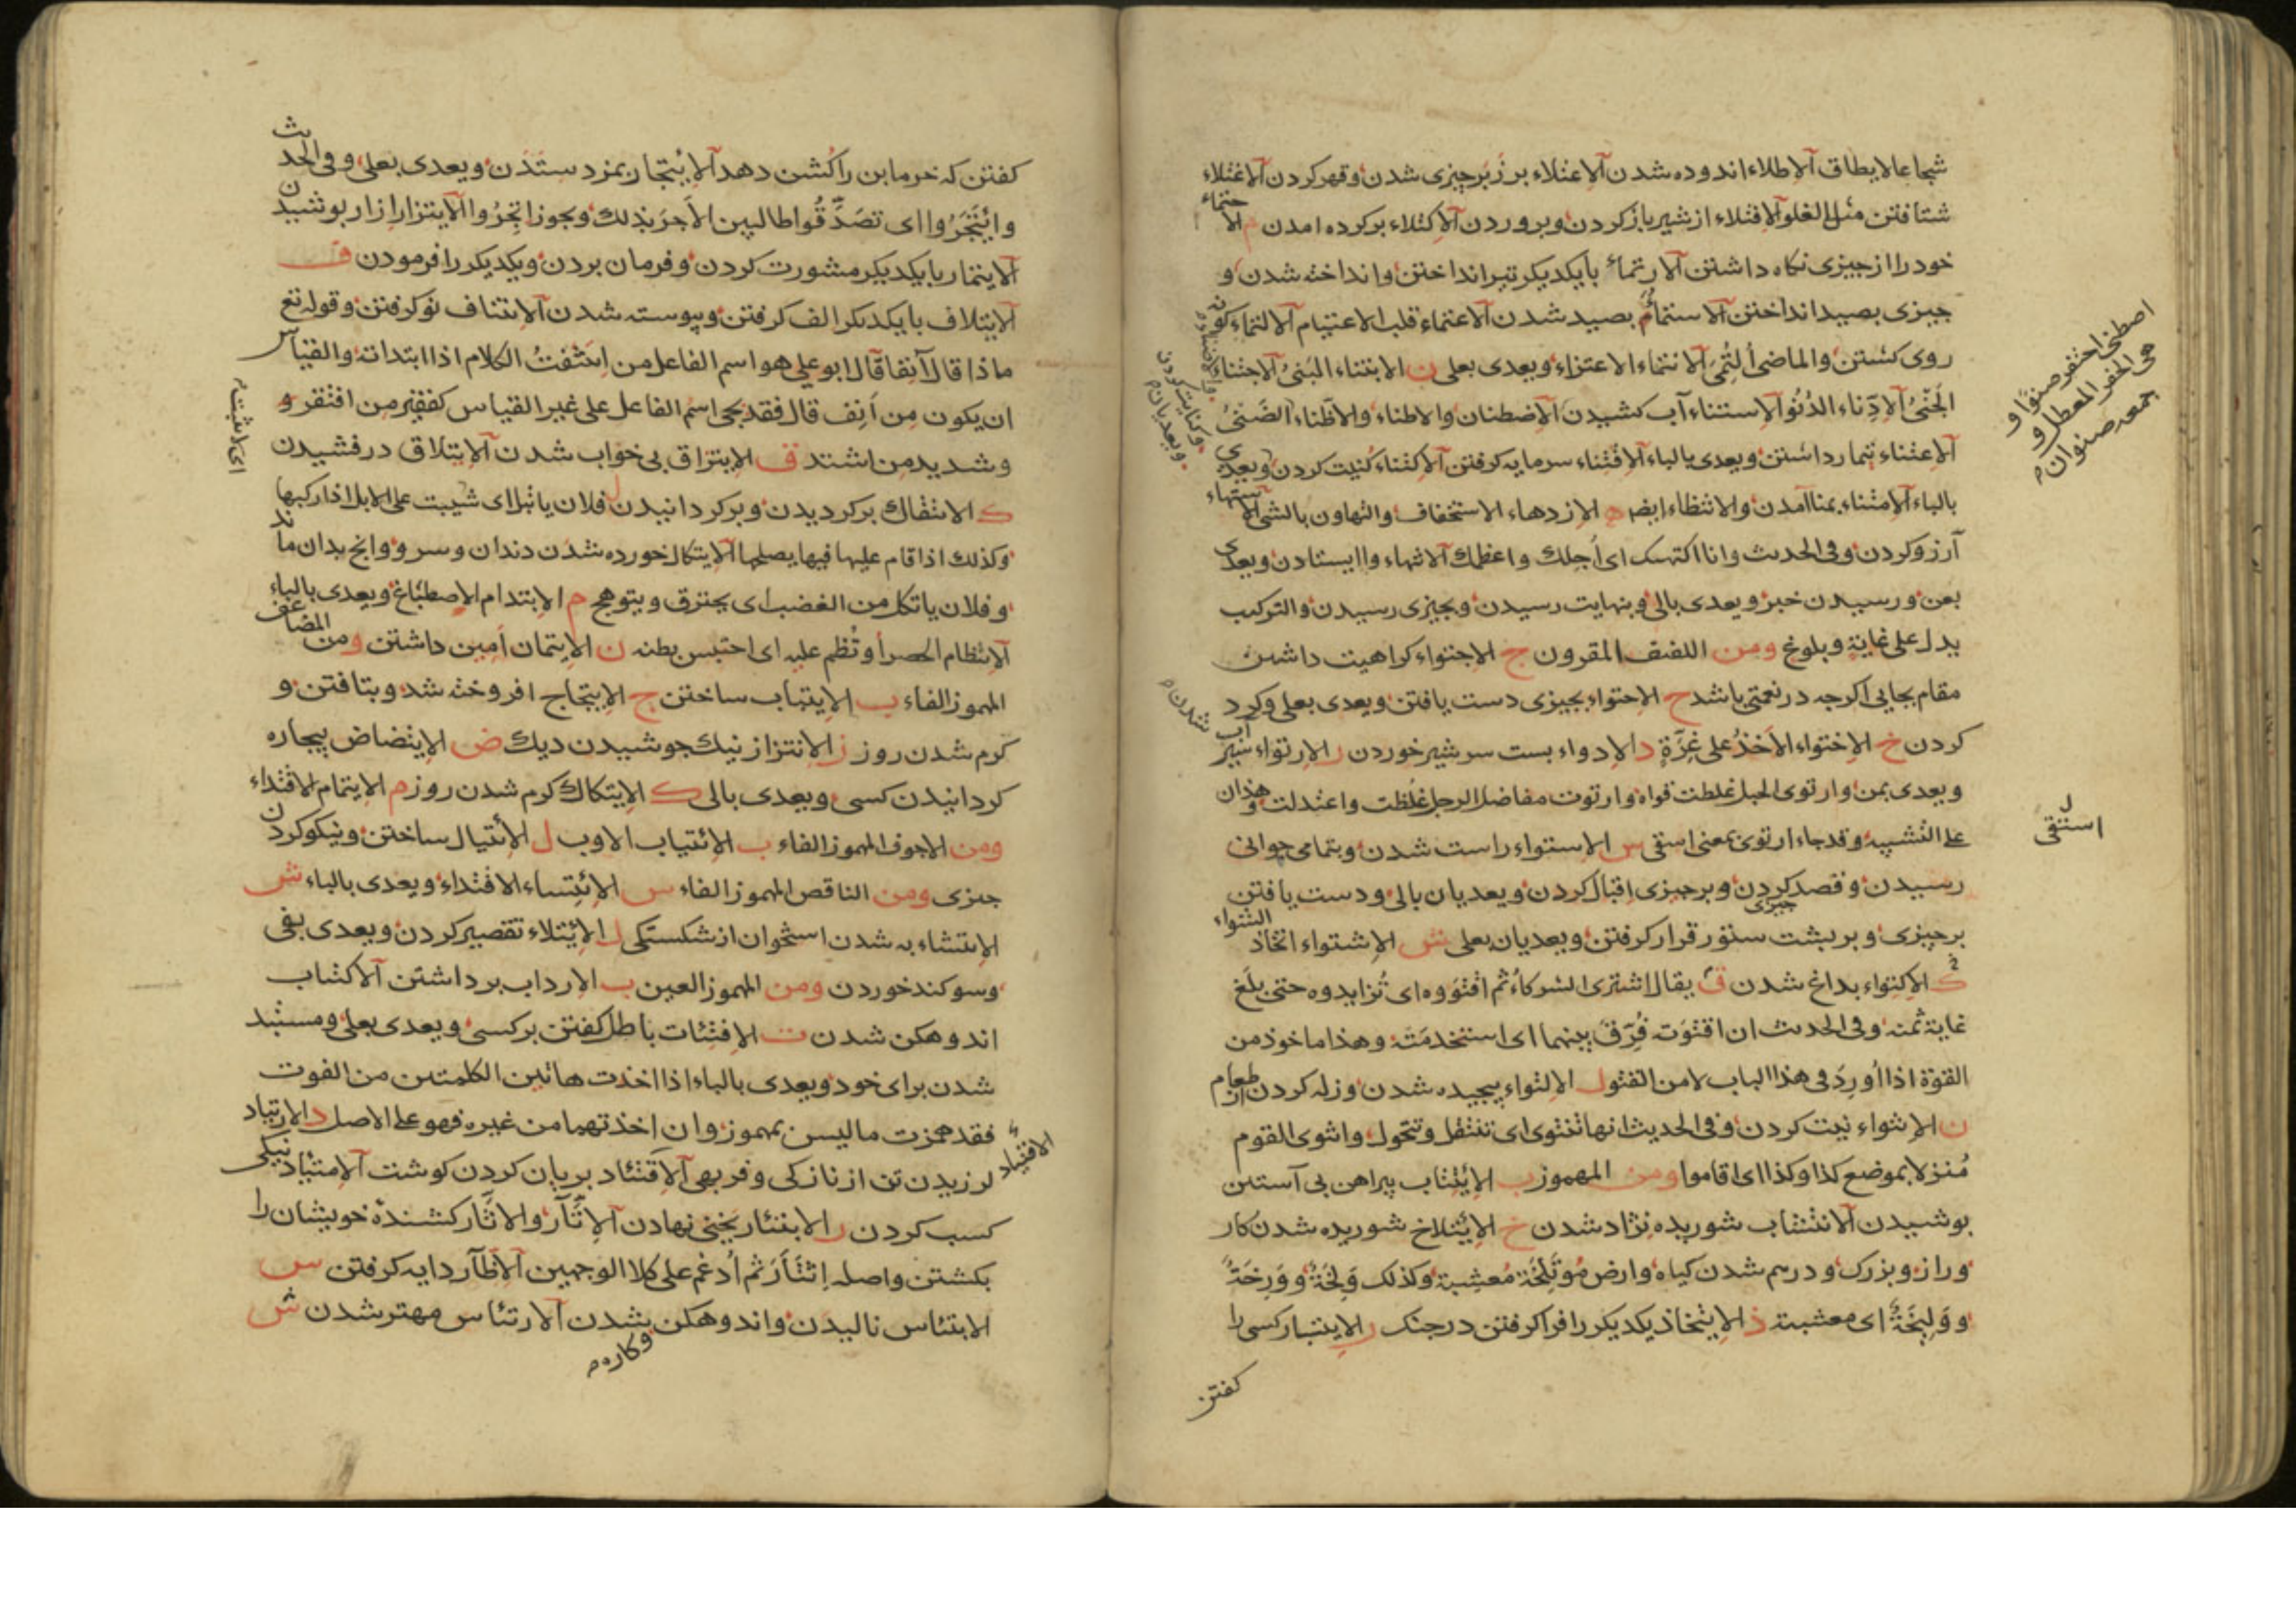 شجاعا لا يطاق الاطلاء اندوده شدن الاعتلاء بر زبر چيزى شدن وقهر كردن الاغتلاء
شتافتن مثل الغلو الافتلاء از شير باز كردن وپروردن الاكتلاء بر كرده امدن م الاحتماء
خود را از چيزى نكاه داشتن الارتماء بايكديكر تير انداختن وانداخته شدن و
چيزى بصيد انداختن الاستماء بصيد شدن الاعتماء قلب الاعتيام الالتماء كونه
روى كشتن والماضى ألتمى الانتماء الاعتزاء ويعدى بعلى ن الابتناء البنى الاجتناء
الجنى الادناء الدنو الاستناء آب كشيدن الاضطنان والاطناء والاظناء الضنى
الاعتناء تيمار داشتن ويعدى بالباء الاقتناء سرمايه كرفتن الاكتناء كنيت كردن ويعدى
بالباء الامتناء بمنا آمدن والانتظاء ايضا ه الازدهاء الاستخفاف والتهاون بالشى الاشتهاء
آرزو كردن وفى الحديث وانا اكتهيك اى أجلك واعظمك الانتهاء واايستادن ويعدى
بعن ورسيدن خبر ويعدى بالى وبنهايت رسيدن وبچيزى رسيدن والتركيب
يدل على غاية وبلوغ ومن اللفيف المقرون ج الاجتواء كراهيت داشتن
مقام بجايى اكرچه در نعمتى باشد ح الاحتواء بچيزى دست يافتن ويعدى بعلى وكرد
كردن خ الاختواء الاخذ على غرة د الادواء بست سر شير خوردن ر الارتواء سير آب
ويعدى بمن وارتوى الحبل غلظت قواه وارتوت مفاصل الرجل غلظت واعتدلت وهذان
على التشبيه وقد جاء ارتوى بمعنى استقى س الاستواء راست شدن وبتمامى جوانى
رسيدن وقصد كردن وبر چيزى اقبال كردن ويعديان بالى ودست يافتن
بر چيزى وبر پشت ستور قرار كرفتن ويعديان بعلى ش الاشتواء اتخاذ الشواء
ك الاكتواء بداغ شدن ق يقال اشترى الشركاء ثم اقتووه اى تزايدوه حتى بلغ
غاية ثمنه وفى الحديث ان اقتوته فرق بينهما اى استخدمته وهذا ماخوذ من
القوة اذا أورد فى هذا الباب لا من القتو ل الالتواء پيچيده شدن وزله كردن از طعام
ن الانتواء نيت كردن وفى الحديث انها تنتوى اى تنتقل وتتحول وانتوى القوم
منزلا بموضع كذا وكذا اى اقاموا ومن المهموز ب الايتتاب پيراهن بى آستين
پوشيدن الانتشاب شوريده نژاد شدن خ الايتلاخ شوريده شدن كار
وراز وبزرك ودرهم شدن كياه وارض موتلخة معشبة وكذلك ولخة وورخة
وولیخة اى معشبة ذ الايتخاذ يكديكر را فرا كرفتن در جنك ر الايتبار كسى را
كفتن
اصطنى احتفر صنوا و
هى الحفر المعطل و
جمعه صنوان م
استقى
وكنايت كردن
ويعديان م
شدن م
كفتن كه خرما بن را كشن دهد الايتجار بمزد ستدن ويعدى بعلى وفى الحديث
وائتجروا اى تصدقوا طالبين الاجر بذلك ويجوز اتجروا الايتزار ازار پوشيدن
الايتمار بايكديكر مشورت كردن وفرمان بردن ويكديكر را فرمودن ف
الايتلاف بايكديكر الف كرفتن وپيوسته شدن الايتناف نو كرفتن وقوله تع
ماذا قال آنفا قال ابو على هو اسم الفاعل من ائتنفت الكلام اذا ابتداته والقياس
ان يكون من أنف قال فقد يجئ اسم الفاعل على غير القياس كفقير من افتقر و
وشديد من اشتد ق الايتراق بى خواب شدن الايتلاق درفشيدن
ك الايتفاك بر كرديدن وبر كردانيدن ل فلان ياتبل اى يثبت على الابل اذا ركبها
وكذلك اذا قام عليها فيها يصلحها الايتكال خورده شدن دندان وسرو وانچ بدان ماند
وفلان ياتكل من الغضب اى يحترق ويتوهج م الايتدام الاصطباغ ويعدى بالباء
الايتظام الحصر أوتظم عليه اى احتبس بطنه ن الايتمان امين داشتن ومن المضاعف
المهموز الفاء ب الايتباب ساختن ج الايتجاج افروخته شد وبتافتن و
كرم شدن روز ز الايتزاز نيك جوشيدن ديك ض الايتضاض بيچاره
كردانيدن كسى ويعدى بالى ك الايتكاك كرم شدن روز م الايتمام الاقتداء
ومن الاجوف المهموز الفاء ب الائتياب الاوب ل الأتيال ساختن ونيكو كردن
چيزى ومن الناقص المهموز الفاء س الايتساء الاقتداء ويعدى بالباء ش
الايتشاء به شدن استخوان از شكستكى ل الايتلاء تقصير كردن ويعدى بفى
وسوكند خوردن ومن المهموز العين ب الارداب برداشتن الاكتئاب
اندوهكن شدن ت الافتئات باطل كفتن بر كسى ويعدى بعلى ومستبد
شدن براى خود ويعدى بالباء اذا اخذت هاتين الكلمتين من الفوت
فقد همزت ما ليس بمهموز وان اخذتهما من غيره فهو على الاصل د الارتياد
لرزيدن تن از نازكى وفربهى الاقتئاد بريان كردن كوشت الامتياد نيكى
كسب كردن ر الابتئار يخنى نهادن الاتآر والاثار كشنده خويشان را
بكشتن واصله اثتأر ثم أدغم على كلا الوجهين الاظآر دايه كرفتن س
الابتئاس ناليدن واندوهكن شدن الارتئاس مهتر شدن ش
اى لا يثبت م
وكاره م